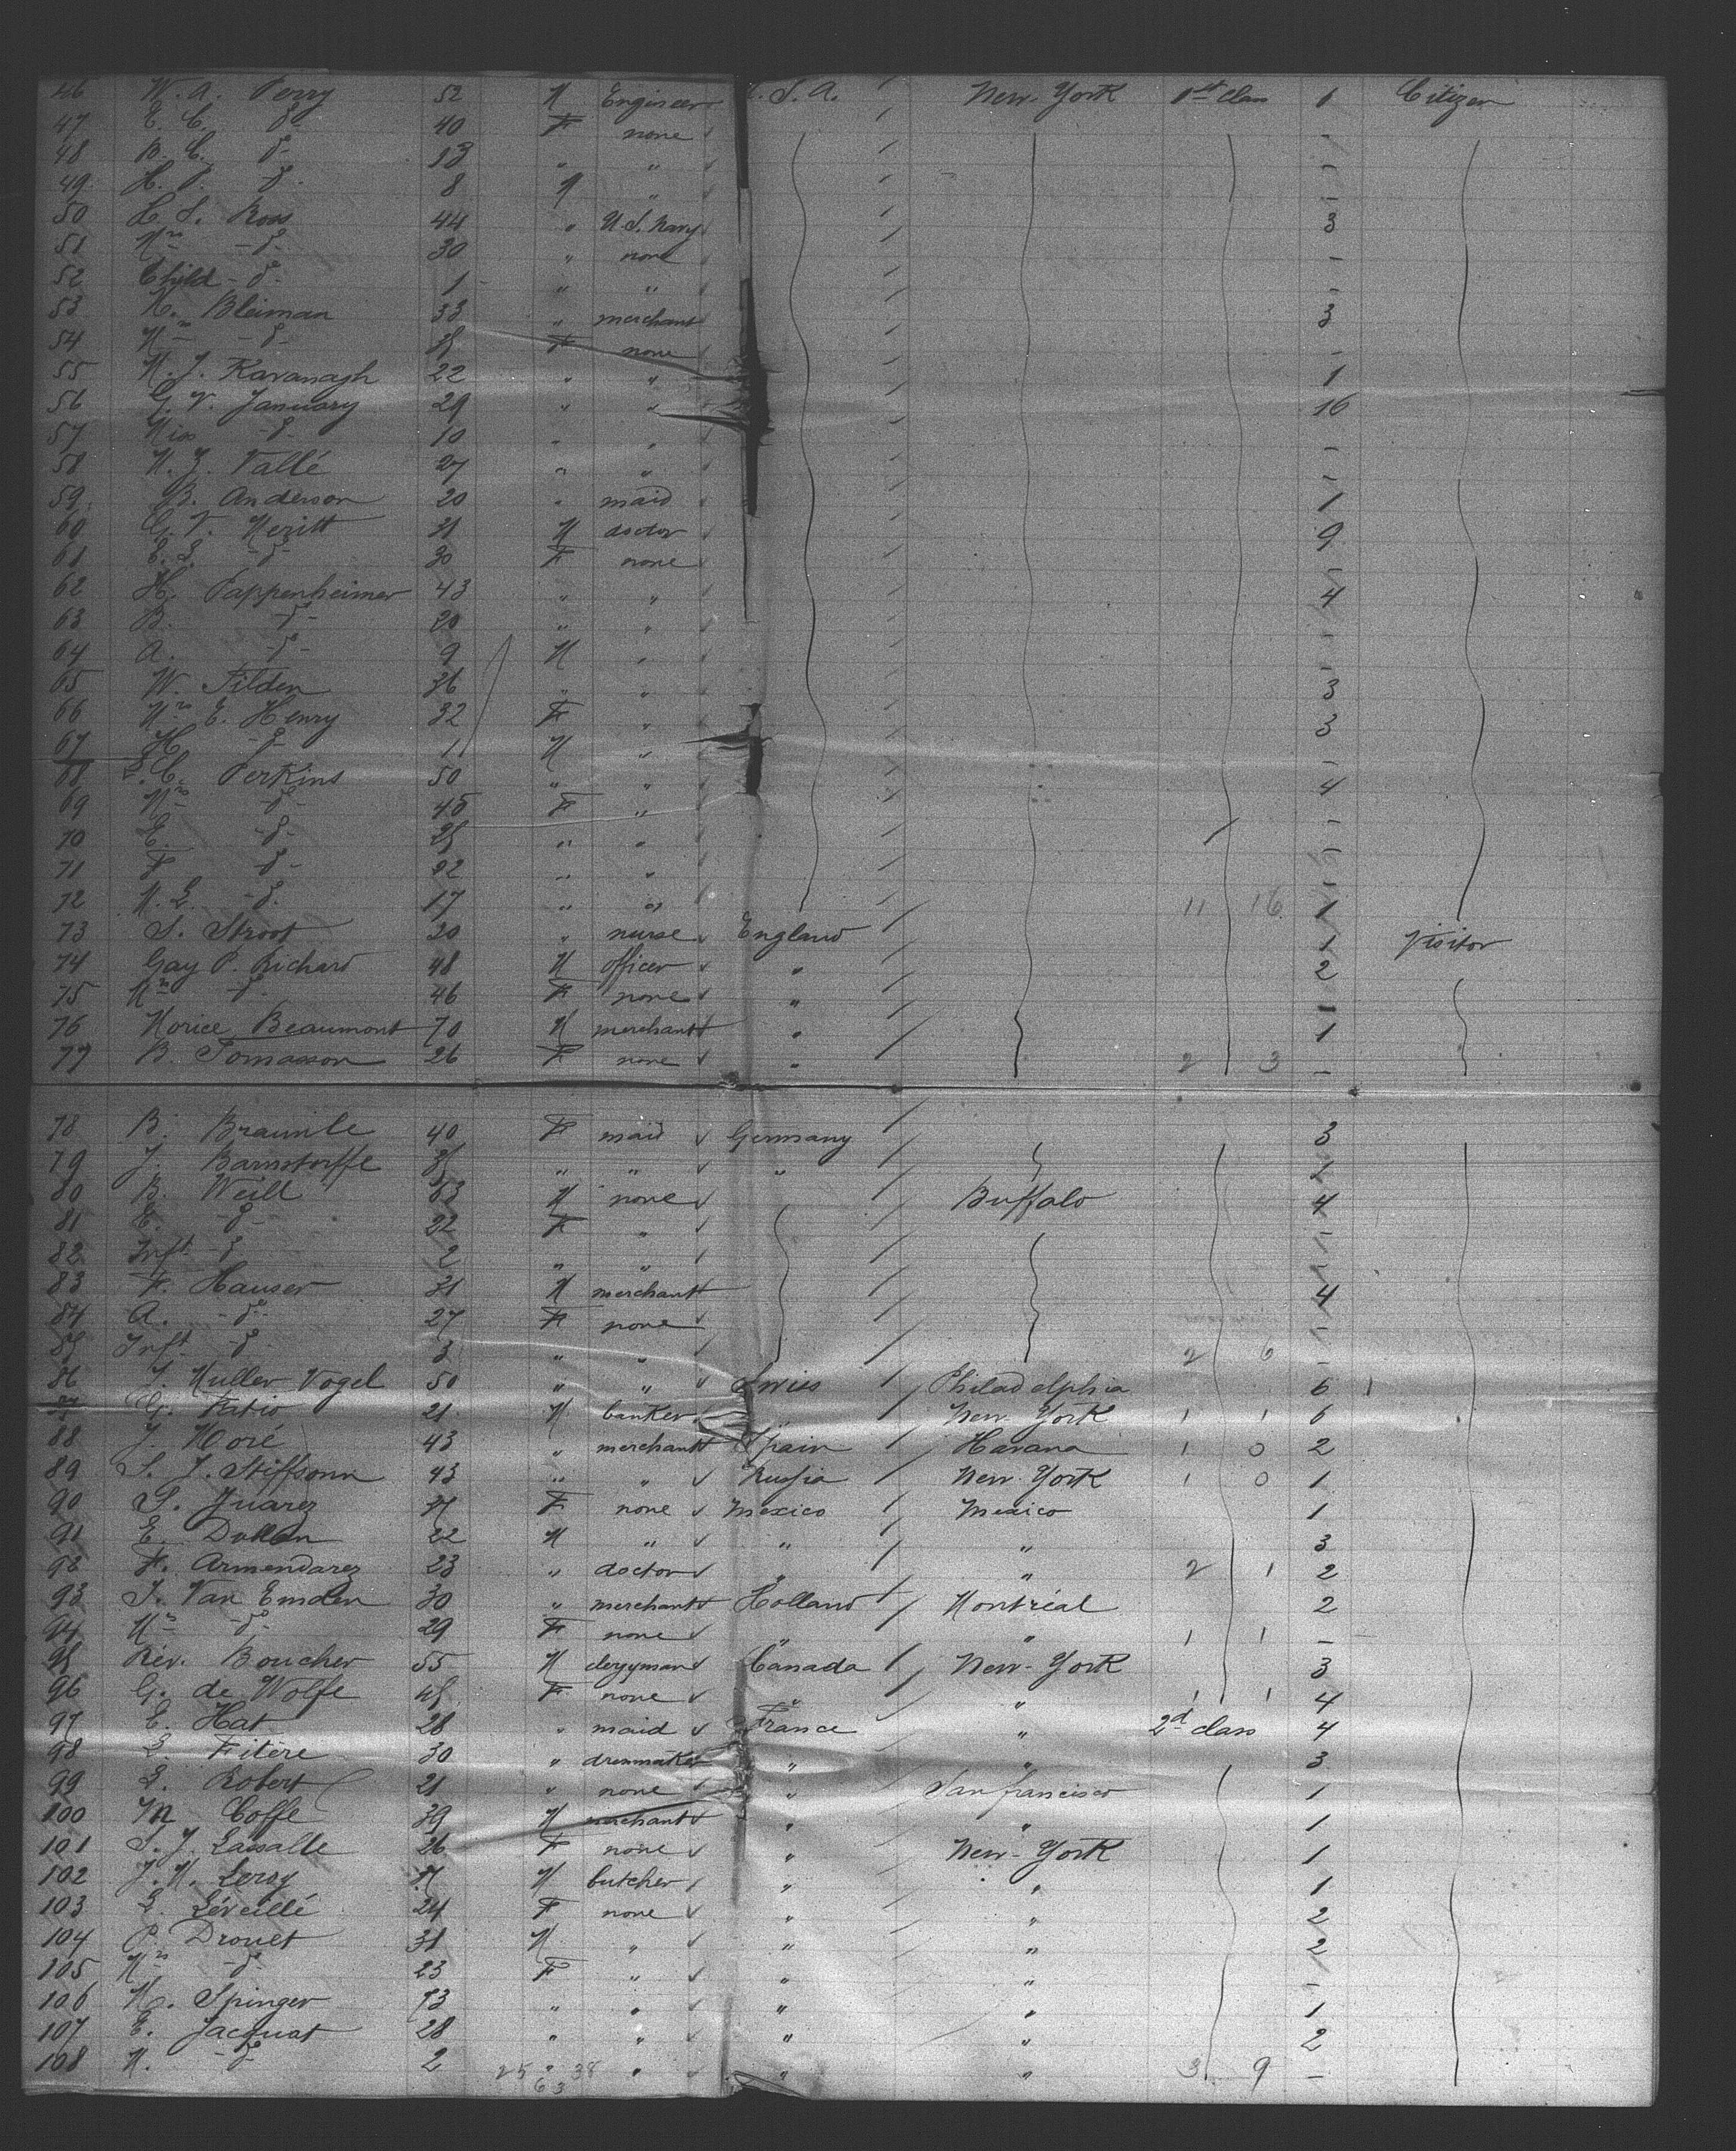 46 W. A. Perry 52 M Engineer U.S.A. New-York 1st class 1 Citizen
47 E. C. -d°- 40 F none -
48 B. C. -d°- 13 " " -
49 H. P. -d°- 8 M " -
50 L. S. Ross 44 " U.S. Navy 3
51 Mrs -d°- 30 " none -
52 Child -d°- 1 " " -
53 H. Bleiman 33 " merchant 3
54 Mrs -d°- F none -
55 M. J. Kavanagh 22 " " 1
56 G. V. January 29 " " 16
57 Miss -d°- 10 " " -
58 M. Z. Vallé 27 " " -
59 B. Anderson 20 " maid 1
60 G. V. Meritt 31 M doctor 9
61 E. L. -d°- 30 F none -
62 H. Pappenheimer 43 " " 4
63 B. -d°- 20 " " -
64 A. -d°- 9 M " -
65 W. Tilden 36 " " 3
66 Mrs E. Henry 32 F " 3
67 H -d°- 1 M " -
68 E. C. Perkins 50 " " 4
69 Mrs -d°- 45 F " -
70 E. -d°- 25 " " -
71 F -d°- 22 " " -
72 M. E. -d°- 17 " " 11 16 1
73 S. Stroot 20 " nurse England 1 Visitor
74 Gay P. Richard 48 M officer " 2
75 Mrs -d°- 46 F none " -
76 Morice Beaumont 70 M merchant " 1
77 B. Tomasson 26 F none " 2 3 -
78 B. Braunle 40 F maid Germany 3
79 J. Barnstorffe 35 " " " 2
80 B. Weill 63 M none Buffalo 4
81 E. -d°- 22 F " -
82 Inft -d°- 2 " " -
83 F. Hauser 31 M merchant 4
84 A. -d°- 27 F none -
85 Inft -d°- 3 " " 2 6 -
86 J. Muller Vogel 50 " " Swiss Philadelphia 6
87 G. Fatio 21 M banker " New-York 1 1 6
88 J. Moré 43 " merchant Spain Havana 1 0 2
89 S. J. Stiffsonn 43 " " Russia New-York 1 0 1
90 S. Juarez F none Mexico Mexico 1
91 E. Dollan 22 M " " " 3
92 F. Armendarez 23 " doctor " " 2 1 2
93 J. Van Emden 30 " merchant Holland Montréal 2
94 Mrs -d°- 29 F none " " 1 1 -
95 Rév. Boucher 55 M clergyman Canada New-York 3
96 G. de Wolfe 45 F none " " 1 1 4
97 E. Hat 28 " maid France " 2d class 4
98 L. Fitère 30 " dressmaker " " 3
99 L. Robert 21 " none " San francisco 1
100 M Coffe 39 M merchant " " 1
101 S. J. Lassalle 26 F none " New-York 1
102 J. M. Leroy M butcher " " 1
103 L. Léveillé 24 F none " " 2
104 P. Drouet 31 M " " " 2
105 Mrs -d°- 23 F " " " -
106 M. Spinger 73 " " " " 1
107 E. Jacquat 28 " " " " 2
108 M. -d°- 2 " " " " 3 9 -
25 38
63